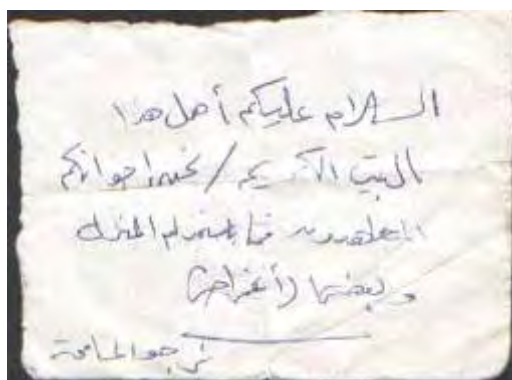 السلام عليكم أهل هذا
البيت الكريم / نحن اخوانكم
المجاهدون قمنا باستخدام المنزل
وبعض الأغراض
نرجو المسامحة